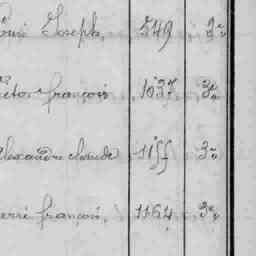 Louis Joseph, 549 2e
Victor françois 1037 3e
Alexandre claude 1155 3e
Pierre françois, 1164 3e